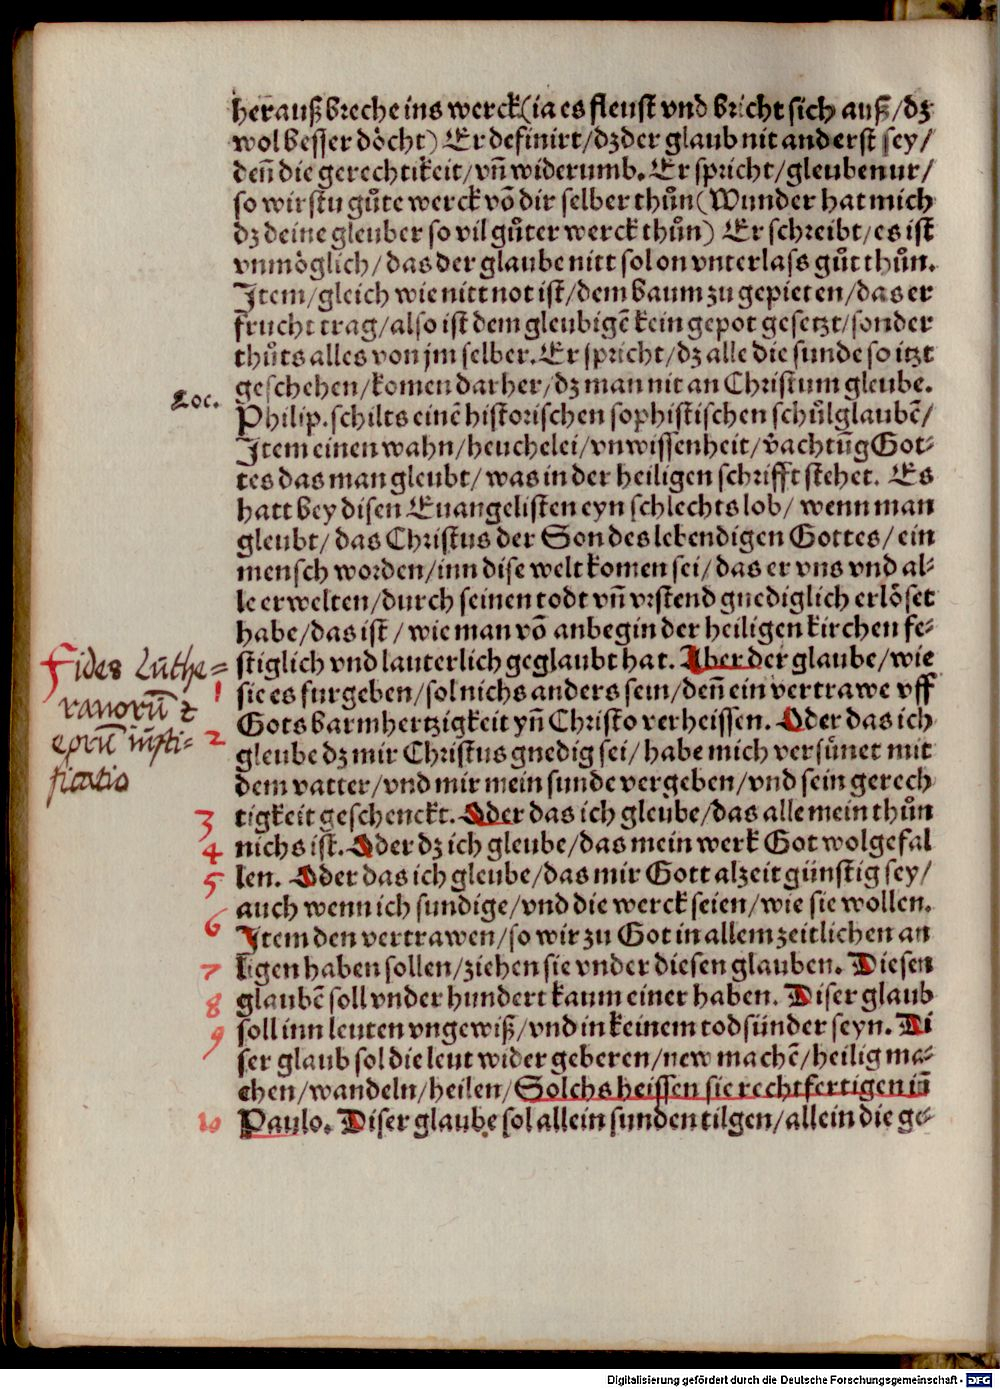 herauß breche ins werck(ia es fleust vnd bricht sich auß/dʒ
wol besser döcht) Er definirt/dʒ der glaub nit anderst sey/
deñ die gerechtikeit/vñ widerumb. Er spricht/gleube nur/
so wirstu gůte werck võ dir selber thůn(Wunder hat mich
dʒ deine gleuber so vil gůter werck thůn) Er schreibt/es ist
vnmöglich/das der glaube nitt sol on vnterlass gůt thůn.
Item/gleich wie nitt not ist/dem baum zu gepieten/das er
frucht trag/also ist dem gleubigẽ kein gepot gesetzt/sonder
thůts alles von jm selber. Er spricht/dʒ alle die sunde so itzt
geschehen/komen dar her/dʒ man nit an Christum gleube.
Loc.
Philip. schilts einẽ historischen sophistischen schůlglaubẽ/
Item einen wahn/heuchelei/vnwissenheit/v̉achtũg Got-
tes das man gleubt/was in der heiligen schrifft stehet. Es
hatt bey disen Euangelisten eyn schlechts lob/ wenn man
gleubt/das Christus der Son des lebendigen Gottes/ein
mensch worden/inn dise welt komen sei/das er vns vnd al-
le erwelten/durch seinen todt vñ vrstend gnediglich erlöset
habe/das ist/wie man võ anbegin der heiligen kirchen fe-
stiglich vnd lauterlich geglaubt hat. Aber der glaube/wie
Fides Luthe-
ranorũ &
eorũ iusti-
ficatio
1
sie es furgeben/sol nichs anders sein/deñ ein vertrawe vff
Gots barmhertzigkeit yñ Christo verheissen. Oder das ich
2
gleube dʒ mir Christus gnedig sei/habe mich versůnet mit
dem vatter/vnd mir mein sunde vergeben/vnd sein gerech
3
tigkeit geschenckt. Oder das ich gleube/das alle mein thůn
4
nichs ist. Oder dʒ ich gleube/das mein werk Got wolgefal
5
len. Oder das ich gleube/das mir Gott alzeit günstig sey/
auch wenn ich sundige/vnd die werck seien/wie sie wollen.
6
Item den vertrawen/so wir zu Got in allem zeitlichen an
7
ligen haben sollen/ziehen sie vnder diesen glauben. Diesen
8
glaubẽ soll vnder hundert kaum einer haben. Diser glaub
9
soll inn leuten vngewiß/vnd in keinem todsünder seyn. Di
ser glaub sol die leut wider geberen/new machẽ/heilig ma-
chen/wandeln/heilen/Solchs heissen sie rechtfertigen iñ
10
Paulo. Diser glaube sol allein sunden tilgen/allein die ge-
Digitalisierung gefördert durch die Deutsche Forschungsgemeinschaft - DFG